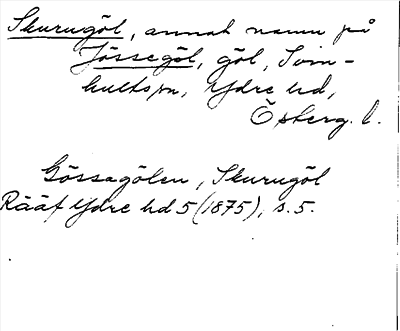 Skurugöl, annat namn på
Jössegöl, göl, Svin-
hults sn, Ydre hd,
Österg. l.
Gössagölen, Skurugöl
Rääf Ydre hd 5 (1875), s. 5.